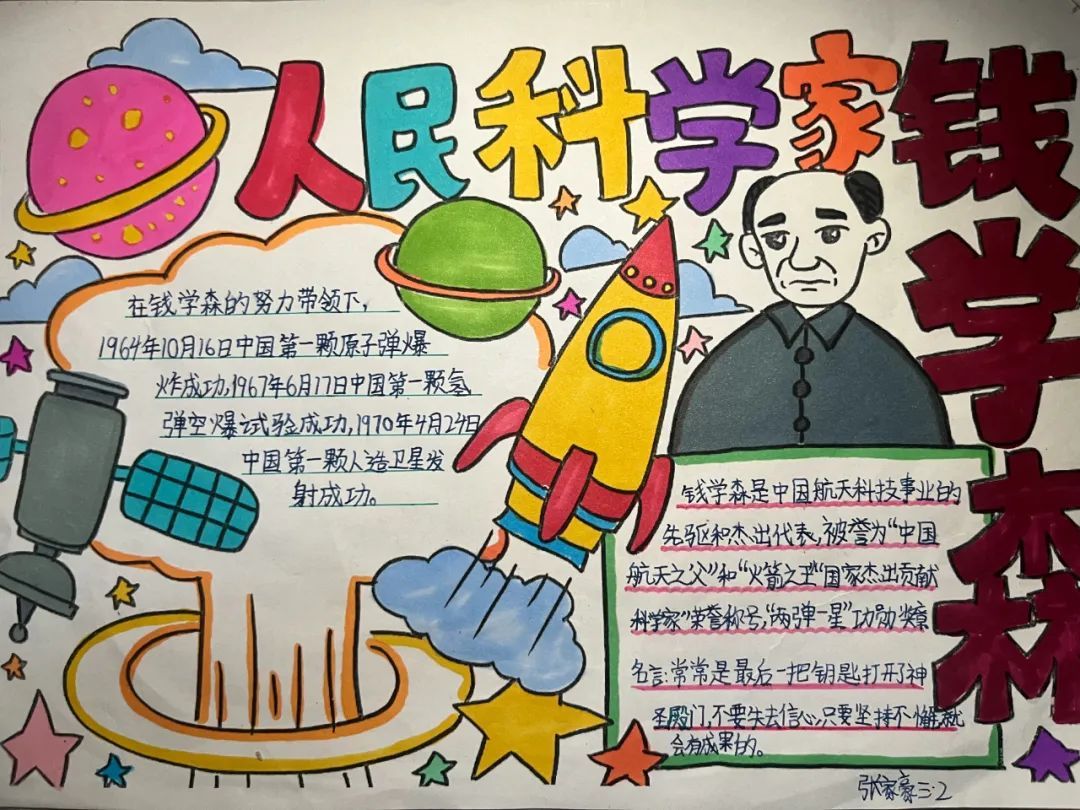 人民科学家钱学森
在钱学森的努力带领下,
1964年10月16日中国第一颗原子弹爆
炸成功,1967年6月17日中国第一颗氢
弹空爆试验成功,1970年4月24日
中国第一颗人造卫星发
射成功。
钱学森是中国航天科技事业的
先驱和杰出代表,被誉为“中国
航天之父”和“火箭之王”国家杰出贡献
科学家”荣誉称号,“两弹一星”功勋奖章
名言:常常是最后一把钥匙打开了神
圣殿门,不要失去信心,只要坚持不懈就
会有成果的。
张家豪三.2